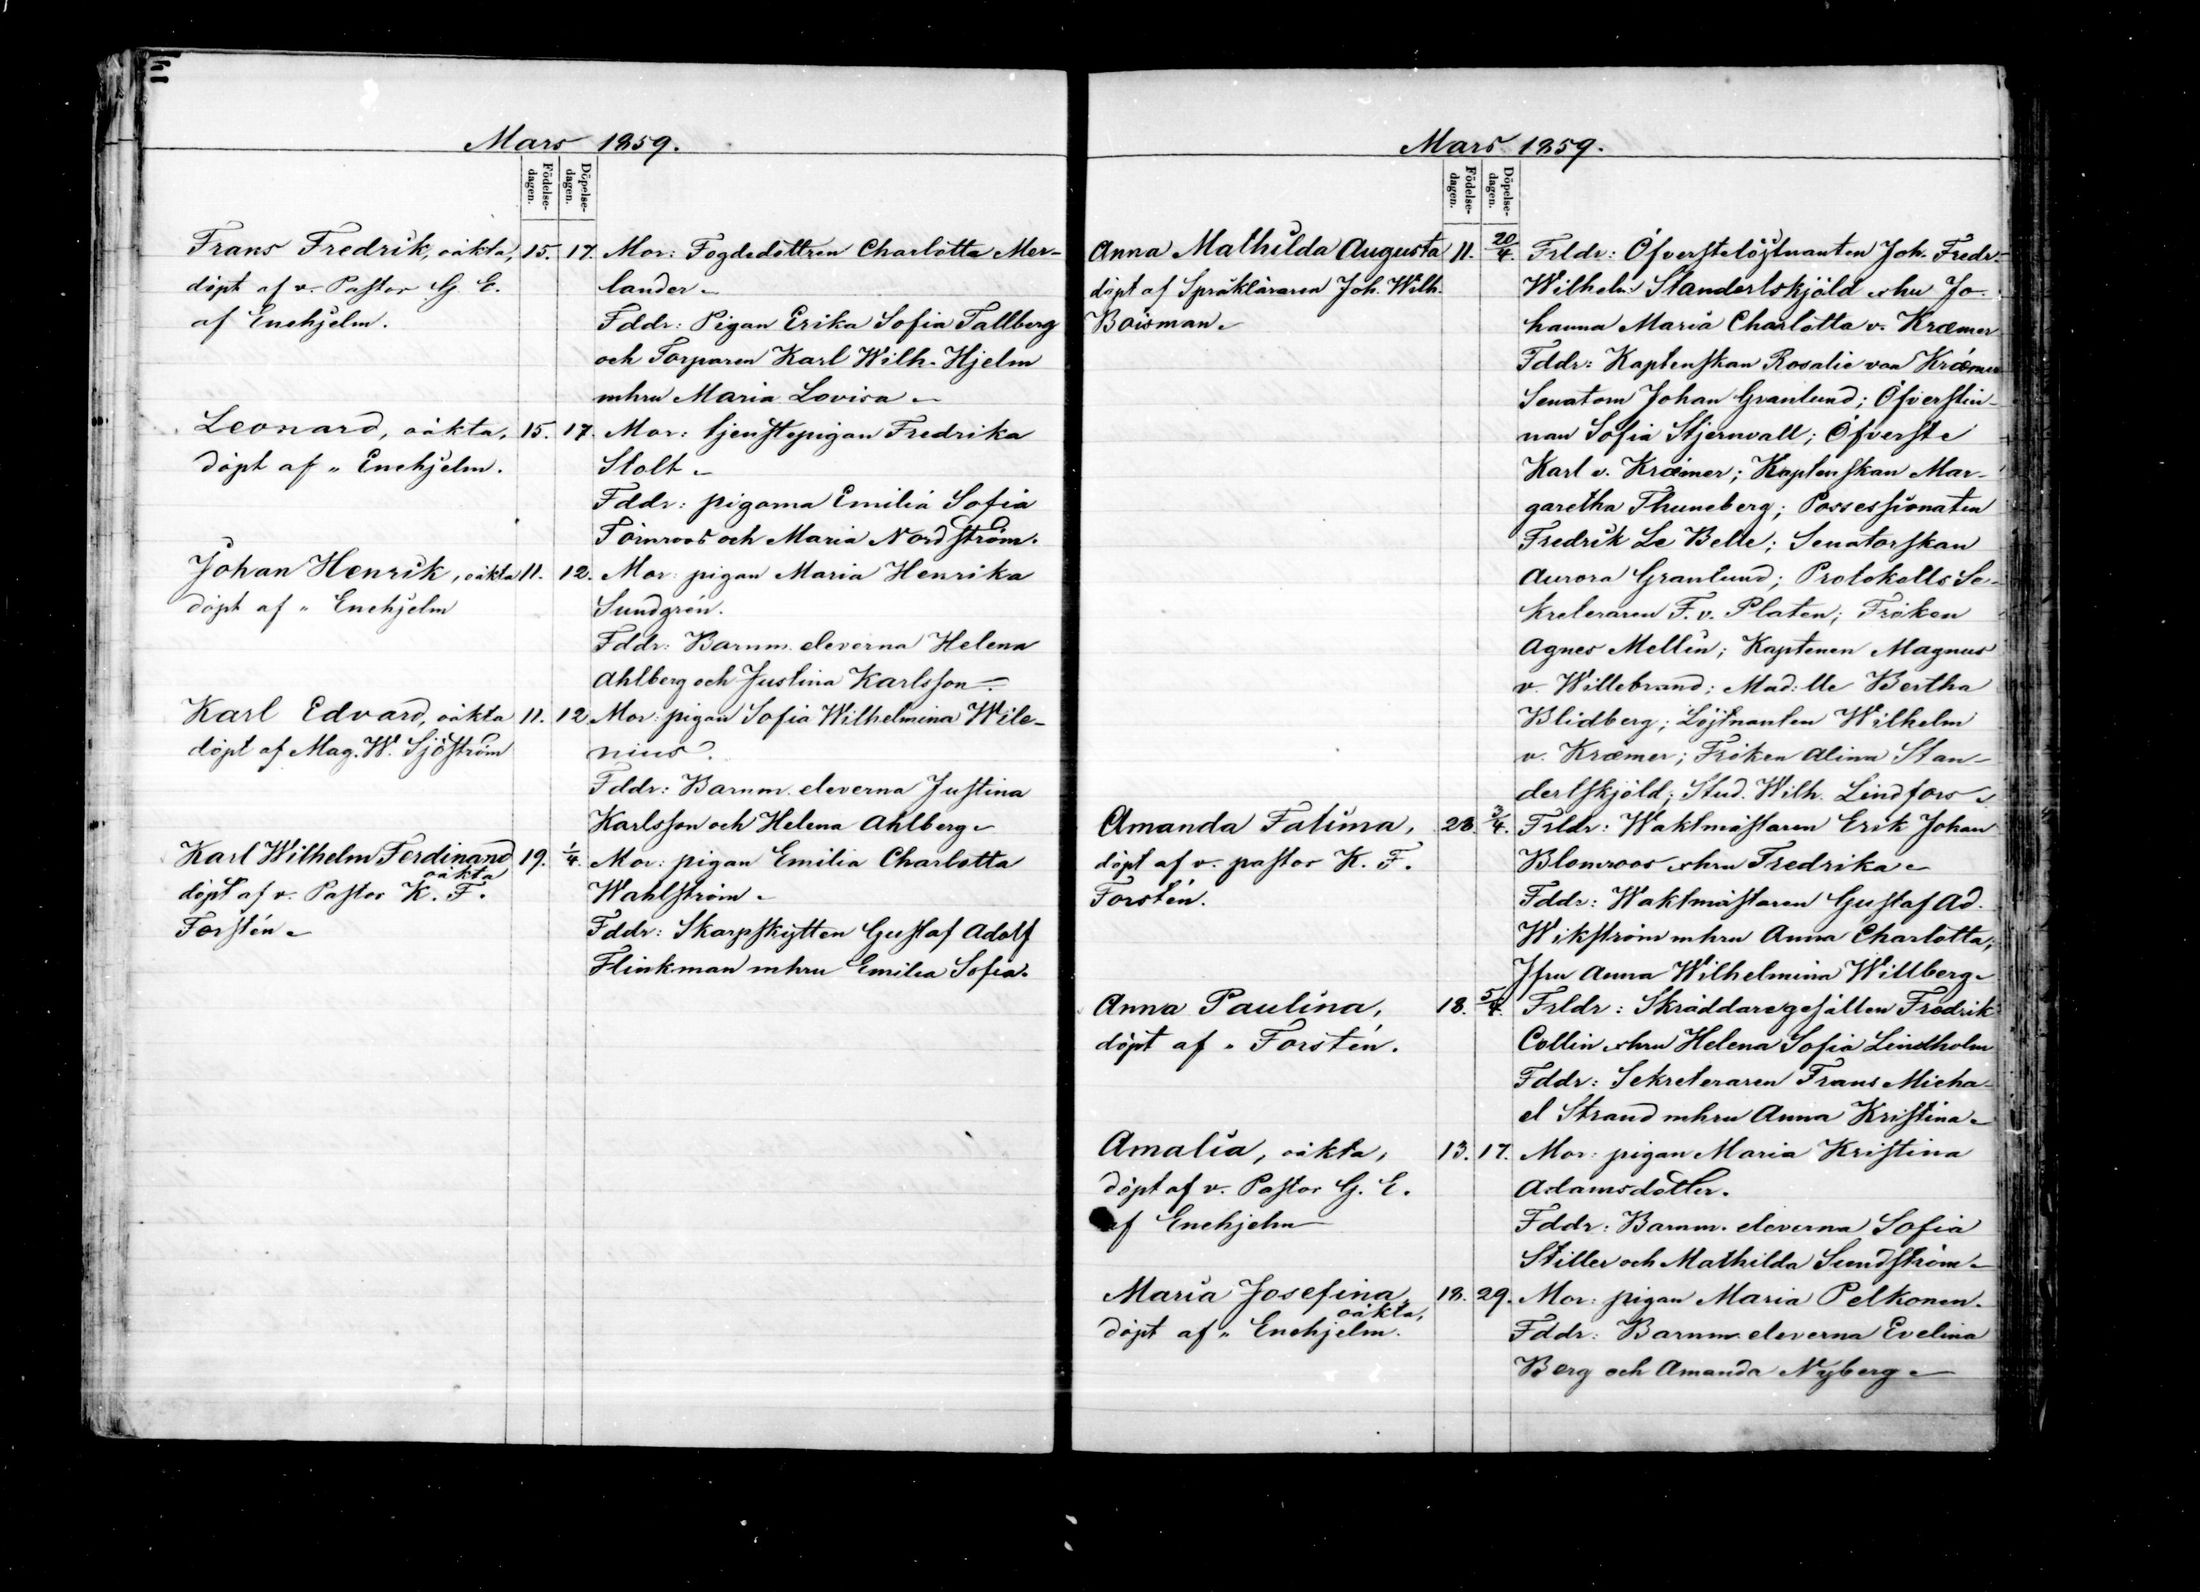 Mars 1859.
Födelse-
dagen.
Döpelse-
dagen.
Frans Fredrik, oäkta, 15. 17. Mor: Fogdedottren Charlotta Mer-
döpt af v. Pastor G. E. lander
af Enehjelm. Fddr: Pigan Erika Sofia Tallberg
och Torparen Karl Wilh. Hjelm
mhru Maria Lovisa
Leonard, oäkta, 15. 17. Mor: tjenstepigan Fredrika
döpt af " Enehjelm. Stolt
Fddr: pigorna Emilia Sofia
Törnroos och Maria Nordström.
Johan Henrik, oäkta 11. 12. Mor: pigan Maria Henrika
döpt af " Enehjelm Sundgrén.
Fddr: Barnm. eleverna Helena
Ahlberg och Justina Karlsson
Karl Edvard, oäkta 11. 12. Mor: pigan Sofia Wilhelmina Wile-
döpt af Mag. W. Sjöström nius.
Fddr: Barnm. eleverna Justina
Karlsson och Helena Ahlberg
Karl Wilhelm Ferdinand 19. 1/4. Mor: pigan Emilia Charlotta
oäkta
döpt af v. Pastor K. F. Wahlström
Forstén Fddr: Skarpskytten Gustaf Adolf
Flinkman mhru Emilia Sofia.
Mars 1859.
Födelse-
dagen.
Döpelse-
dagen.
Anna Mathilda Augusta 11. 20/4. Frldr: Öfverstelöjtnanten Joh. Fredr.
döpt af Språkläraren Joh. Wilh. Wilhelm Standertskjöld o hu Jo-
Boisman hanna Maria Charlotta v. Kræmer
Fddr: Kaptenskan Rosalie von Kræmer
Senatorn Johan Granlund; Öfverstin-
nan Sofia Stjernvall; Öfverste
Karl v. Kræmer; Kaptenskan Mar-
garetha Thuneberg; Possessionaten
Fredrik Le Belle; Senatorskan
Aurora Granlund; Protokolls Se-
kreteraren F. v. Platen; Fröken
Agnes Mellin; Kaptenen Magnus
v. Willebrand; Mad:lle Bertha
Blidberg; Löjtnanten Wilhelm
v. Kræmer; Fröken Alina Stan-
dertskjöld; Stud. Wilh. Lindfors
Amanda Fatima, 28. 3/4. Frldr: Waktmästaren Erik Johan
döpt af v. pastor K. F. Blomroos o hru Fredrika
Forstén. Fddr: Waktmästaren Gustaf Ad.
Wikström mhru Anna Charlotta;
Jfru Anna Wilhelmina Willberg
Anna Paulina, 18. 5/4. Frldr: Skräddaregesällen Fredrik
döpt af " Forstén. Collin o hru Helena Sofia Lindholm
Fddr: Sekreteraren Frans Micha-
el Strand mhru Anna Kristina
Amalia, oäkta, 13. 17. Mor: pigan Maria Kristina
döpt af v. Pastor G. E. Adamsdotter.
af Enehjelm Fddr: Barnm. eleverna Sofia
Stiller och Mathilda Sundström
Maria Josefina, 18. 29. Mor: pigan Maria Pelkonen.
oäkta,
döpt af " Enehjelm. Fddr: Barnm. eleverna Evelina
Berg och Amanda Nyberg